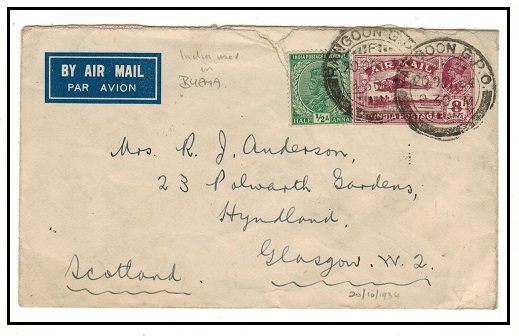 BY AIR MAIL
PAR AVION
India used
in
BURMA
INDIA POSTAGE & REVENUE
HALF ½A ANNA
AIR MAIL
8As
INDIA POSTAGE
RANGOON G.P.O.
RANGOON G.P.O.
Mrs. R. J. Anderson,
23 Polwarth Gardens,
Hyndland.
Glasgow. W. 2.
Scotland.
20/10/1934